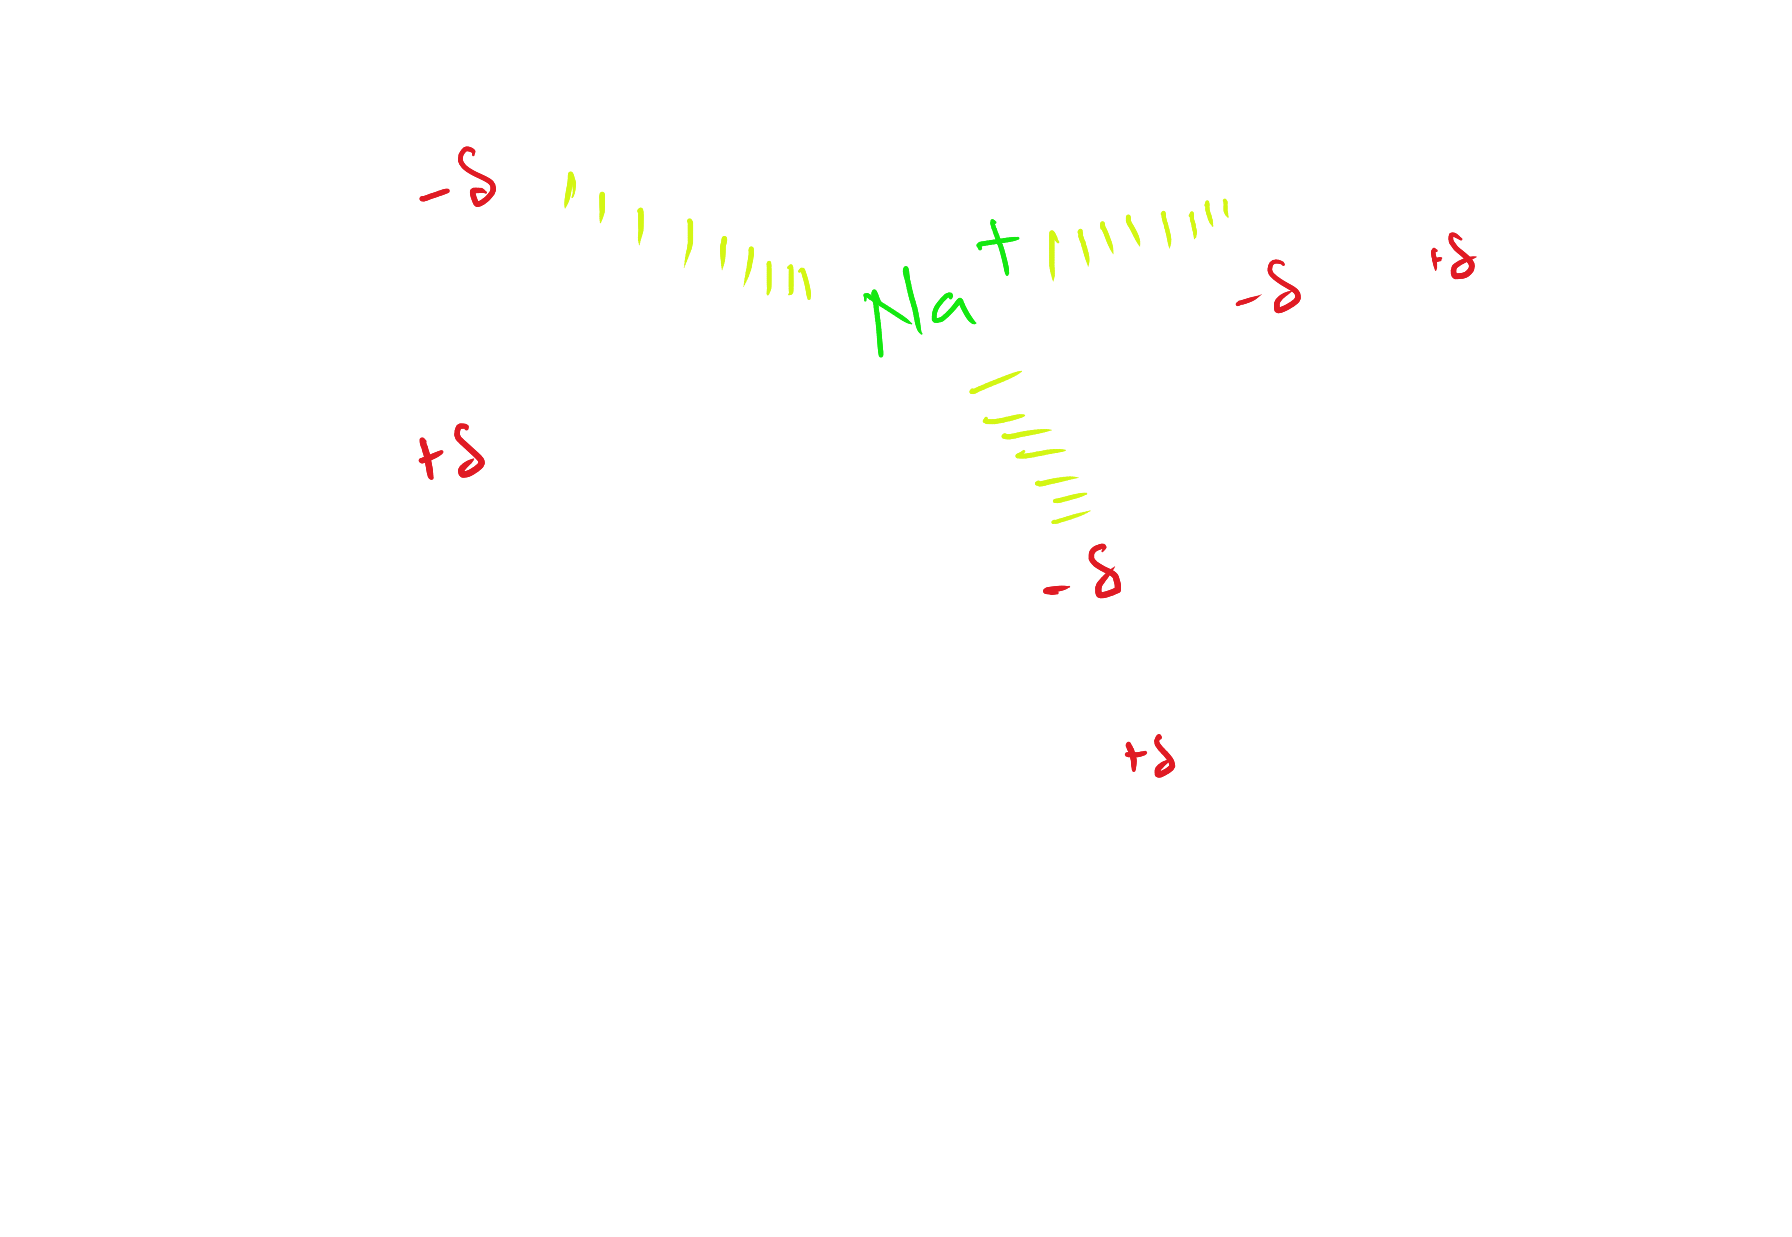 -δ
Na⁺
-δ
+δ
+δ
-δ
+δ